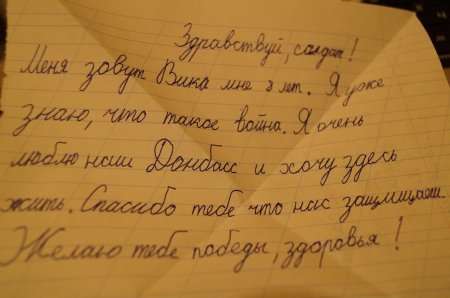 Здравствуй, солдат!
Меня зовут Вика мне 8 лет. Я уже
знаю, что такое война. Я очень
люблю наш Донбасс и хочу здесь
жить. Спасибо тебе что нас защищаеш
Желаю тебе победы, здоровья!